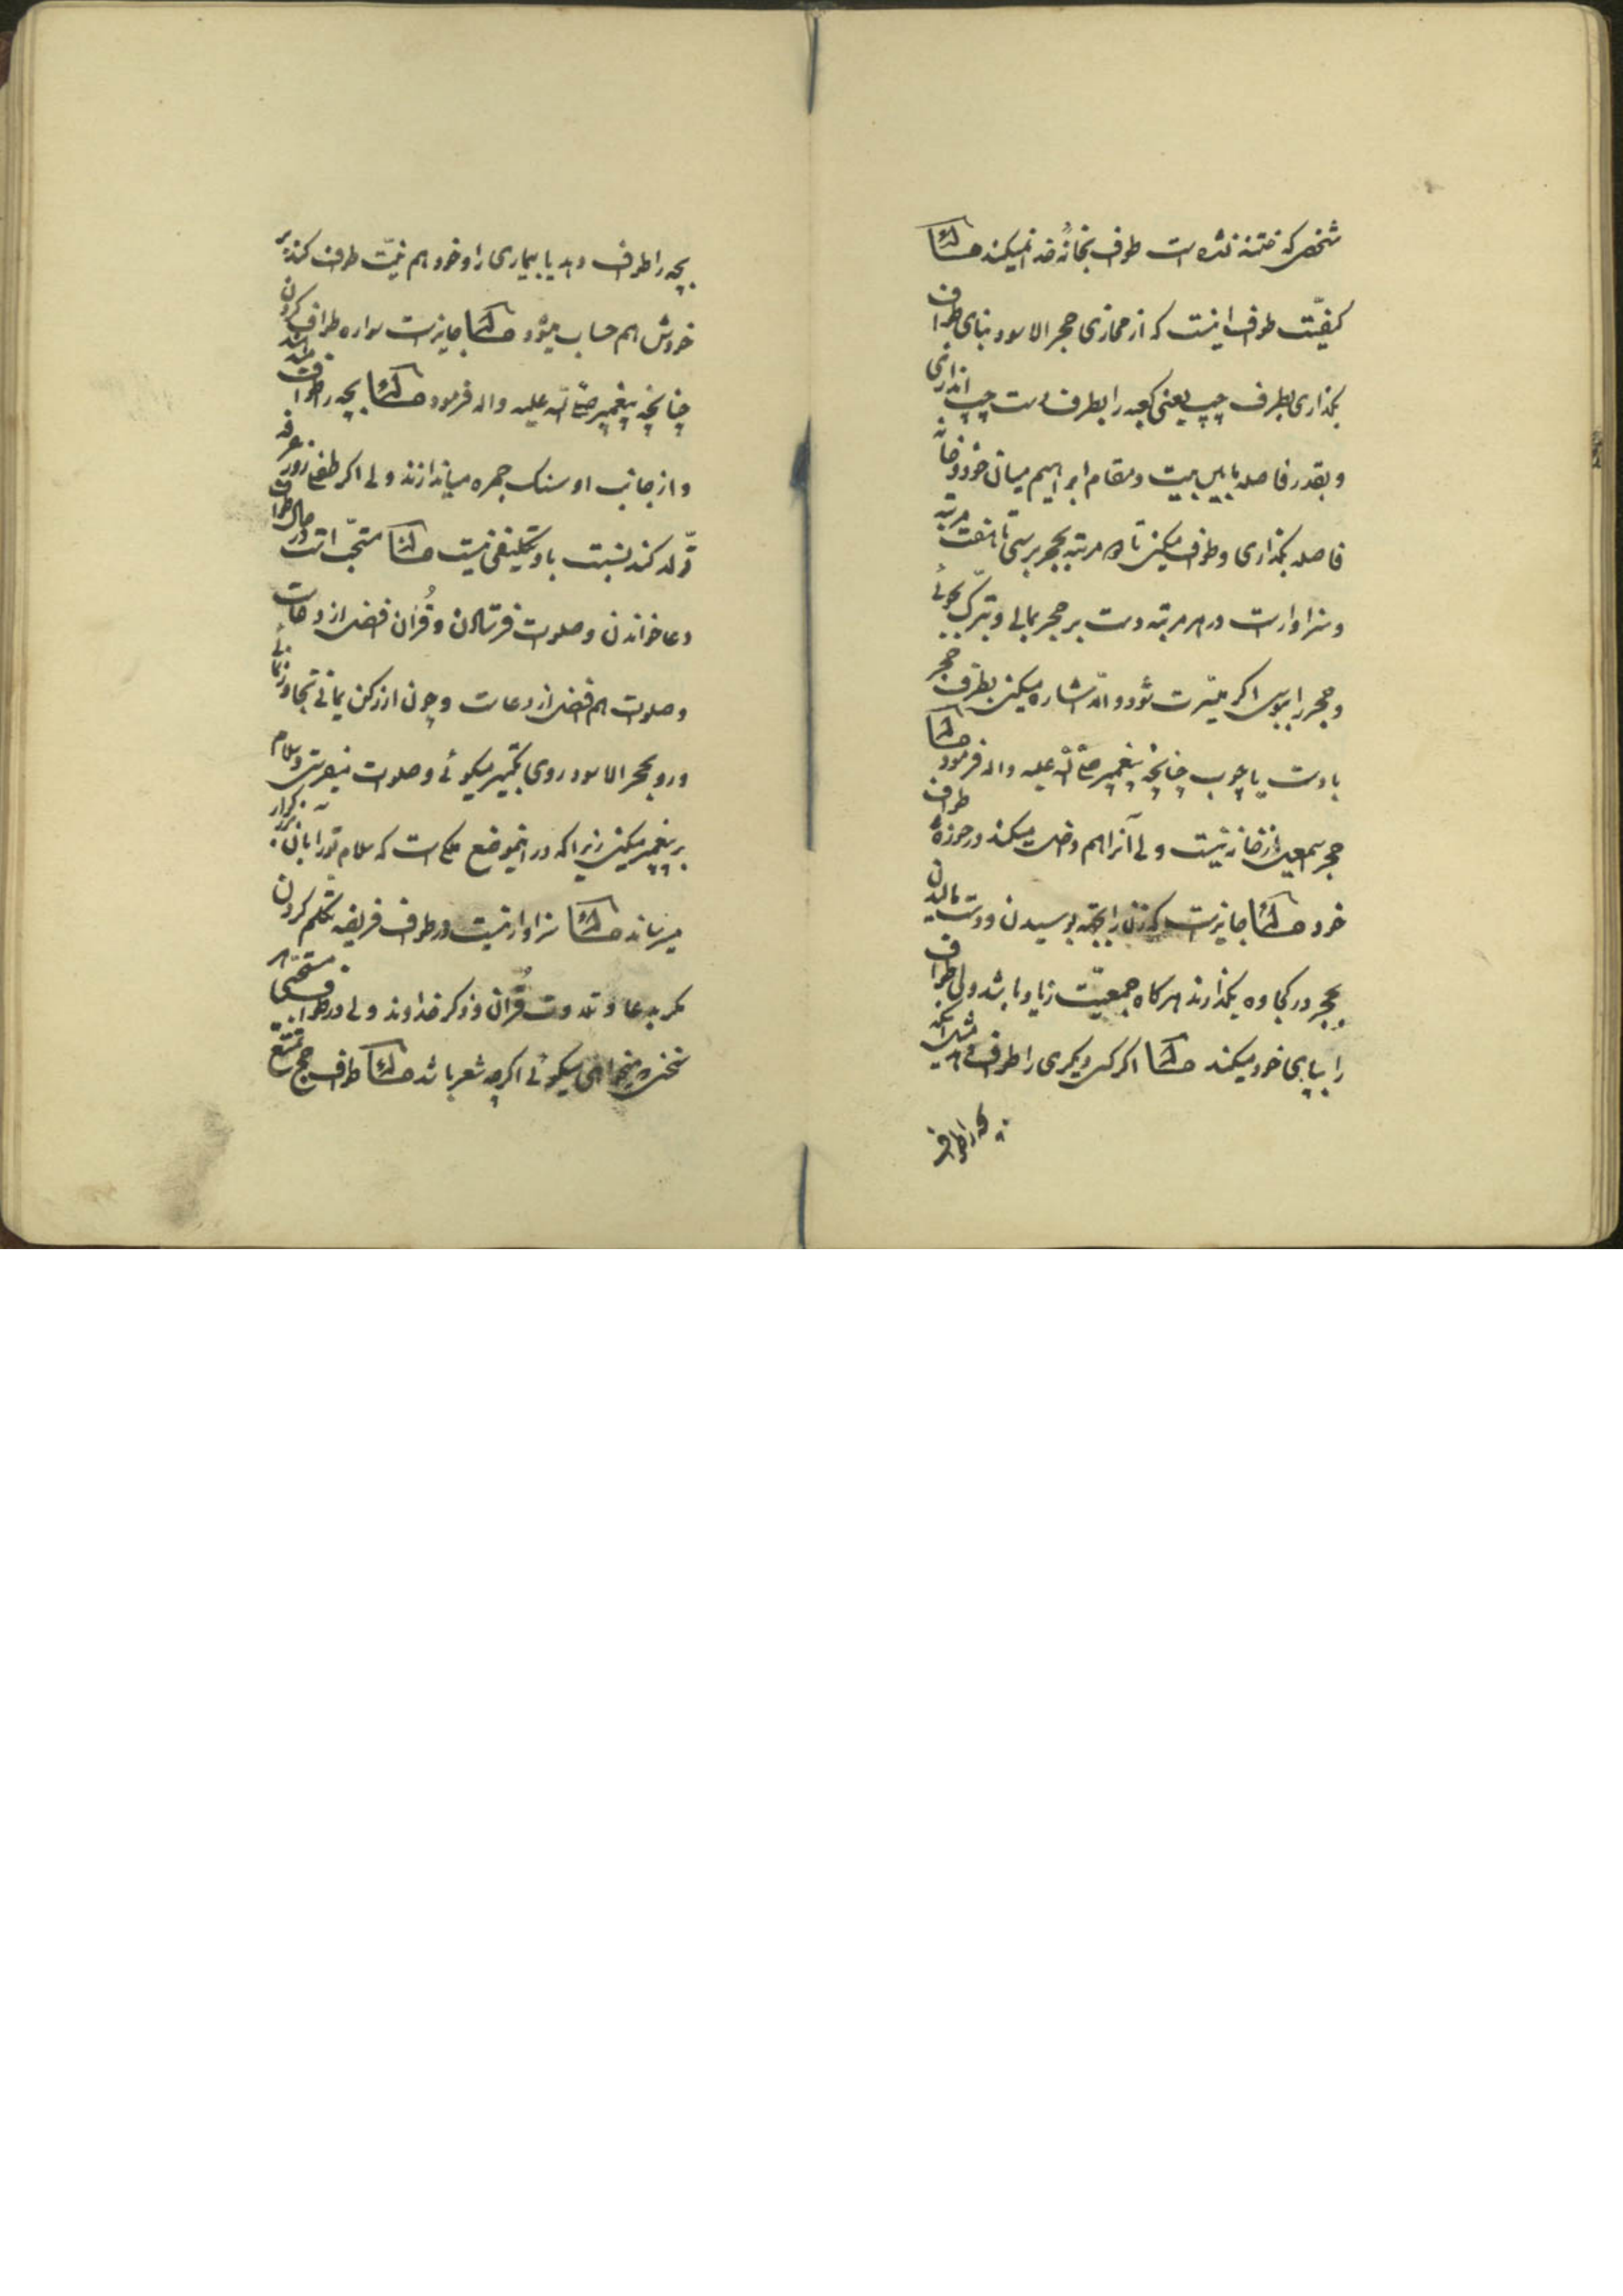 شخصی که ختنه نشده است طواف بخانهٔ خدا نمیکند مسئله
کیفیّت طواف اینست که از محازی حجر الاسود بنای طواف
بگذاری بطرف چپ یعنی کعبه را بطرف دست چپ اندازی
و بقدر فاصله مابین بیت و مقام ابراهیم میان خود و خانه
فاصله بگذاری و طواف میکنی تا هر مرتبه بحجر برسی تا هفت مرتبه
و سزاوار است در هر مرتبه دست بر حجر بمالی و تبرّک بجوئی
و حجر را ببوسی اگر میسّرت شود و الّا اشاره میکنی بطرف حجر
با دست یا چوب چنانچه پیغمبر صلی الله علیه و اله فرمود مسئله
حجر اسمعیل از خانه نیست ولی آنرا هم داخل میکند در حوزهٔ طواف
خود مسئله جایز است که زن را بجهة بوسیدن و دست مالیدن
بحجر در کجاوه بگذارند هر گاه جمعیّت زیاد باشد ولی طواف
را بپای خود میکند مسئله اگر کسی دیگری را طواف دهد مثل اینکه
بچه را طواف
بچه را طواف دهد یا بیماری را و خود هم نیّت طواف کند بر
خودش هم حساب میشود مسئله جایز است سواره طواف کردن
چنانچه پیغمبر صلی الله علیه و اله فرمود مسئله بچه را طواف
و از جانب او سنک جمره میاندازند ولی اگر طفلی روز عرفه
تولّد کند نسبت باو تکلیفی نیست مسئله مستحبّ است در حال طواف
دعا خواندن و صلوات فرستادن و قُرآن افضل از دعاست
و صلوات هم افضل از دعاست و چون از رکن یمانی تجاوز نمائی
و رو بحجر الاسود روی تکبیر میگوئی و صلوات میفرستی و سلام
بر پیغمبر میکنی زیرا که در اینموضع ملکی است که سلام تو را بآن بزرگوار
میرساند مسئله سزاوار نیست در طواف فریضه تکلّم کردن
مکر بدعا و تلاوت قُرآن و ذکر خداوند ولی در طواف مستحبّی هر
سخنی میخواهی میکوئی اگرچه شعر باشد مسئله طواف حجّ تمتّع